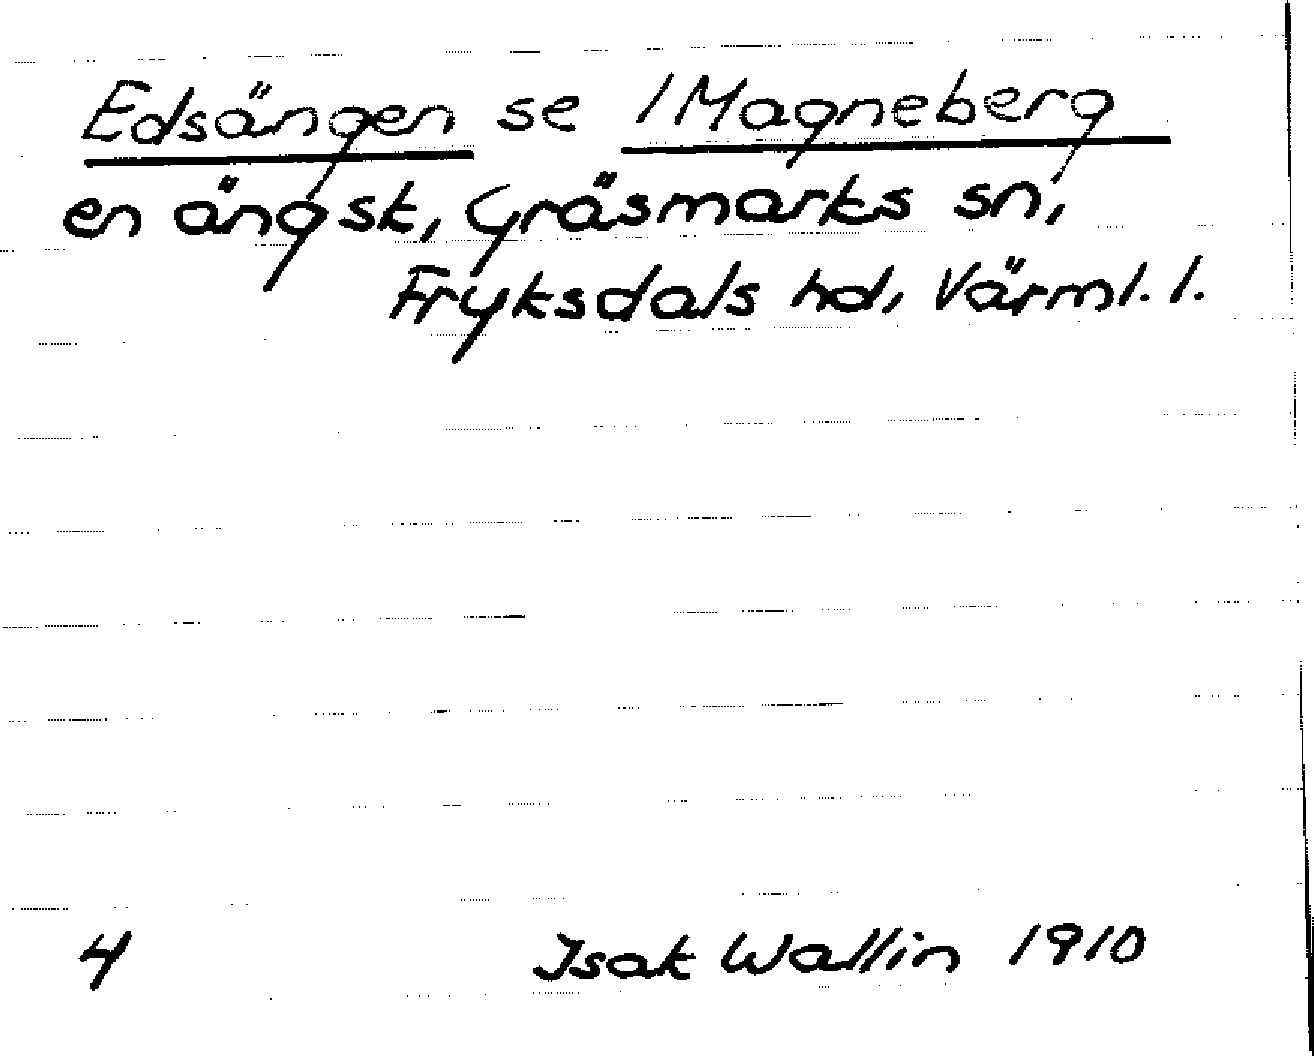 Edsängen se 1 Magneberg
en ängsk, Gräsmarks sn,
Fryksdals hd, Värml. l.
4 Isak Wallin 1910